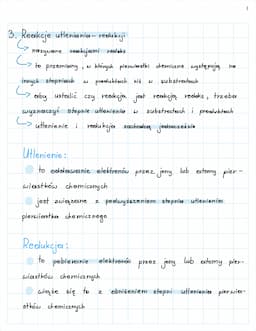 1
3. Reakcje utleniania - redukcji
nazywane reakcjami redoks
to przemiany, w których pierwiastki chemiczne występują na
innych stopniach w produktach niż w substratach
aby ustalić czy reakcja jest reakcją redoks, trzeba
wyznaczyć stopnie utlenienia w substratach i produktach
utlenienie i redukcja zachodzą jednocześnie
Utlenienie:
to oddawanie elektronów przez jony lub atomy pier-
wiastków chemicznych
jest związane z podwyższeniem stopnia utlenienia
pierwiastka chemicznego
Redukcja:
to pobieranie elektronów przez jony lub atomy pier-
wiastków chemicznych
wiąże się to z obniżeniem stopni utlenienia pierwia-
stków chemicznych